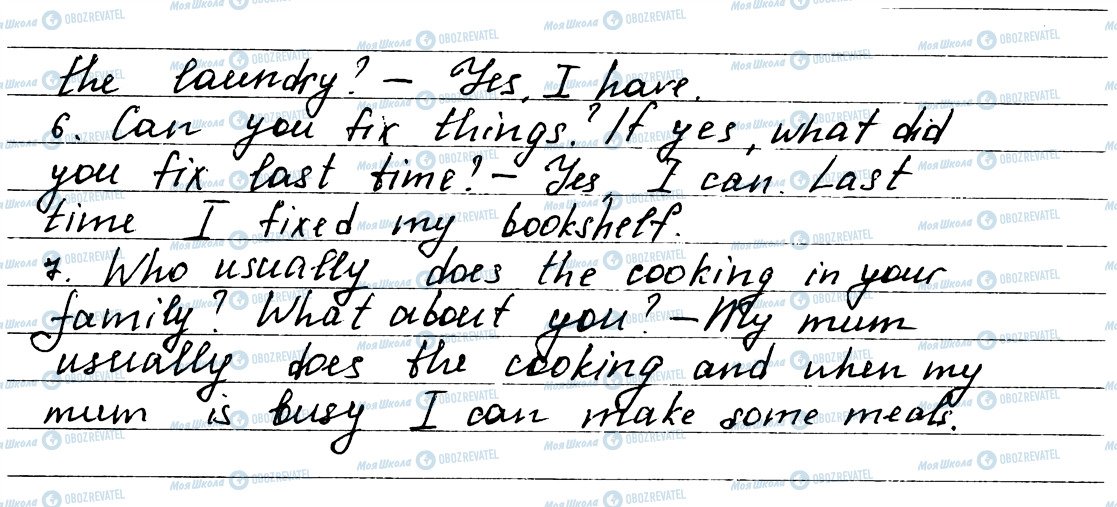 the laundry? – Yes, I have.
6. Can you fix things? If yes, what did
you fix last time? – Yes, I can. Last
time I fixed my bookshelf.
7. Who usually does the cooking in your
family? What about you? – My mum
usually does the cooking and when my
mum is busy I can make some meals.